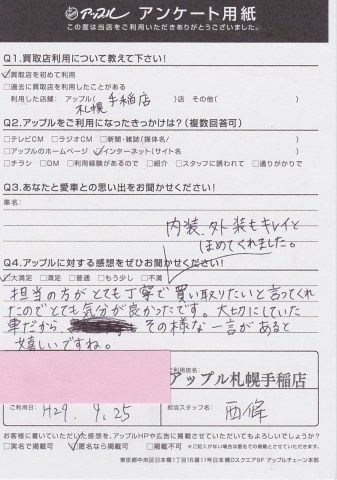 アップル アンケート用紙
この度は当店をご利用いただきありがとうございました。
Q1.買取店利用について教えて下さい!
☑買取店を初めて利用
□過去に買取店を利用したことがある
利用した店舗: アップル( 札幌手稲店 )店 その他( )
Q2.アップルをご利用になったきっかけは?(複数回答可)
□テレビCM □ラジオCM □新聞・雑誌(媒体名/ )
□アップルのホームページ ☑インターネット(サイト名 )
□チラシ □DM □利用経験があるので □紹介 □スタッフに誘われて □通りがかりで
Q3.あなたと愛車との思い出をお聞かせください!
車名:
内装、外装もキレイと
ほめてくれました。
Q4.アップルに対する感想をぜひお聞かせください!
☑大満足 □満足 □普通 □もう少し □不満
担当の方がとても丁寧で買い取りたいと言ってくれ
たのでとても気分が良かったです。大切にしていた
車だから、その様な一言があると
嬉しいですね。
ご利用店名:
アップル札幌手稲店
ご利用日: H29. 9. 25
担当スタッフ名: 西條
お客様に書いていただいた感想を、アップルHPや広告に掲載させていただいてもよろしいでしょうか?
□実名で掲載可 ☑匿名なら掲載可 □掲載不可
東京都中央区日本橋1丁目16番11号日本橋Dスクエア5F アップルチェーン本部